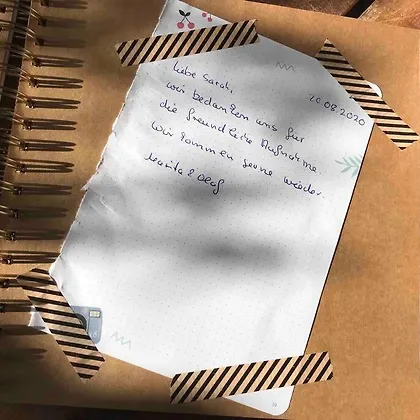 Liebe Sarah,
20.08.2020
wir bedanken uns für
die freundliche Aufnahme.
Wir kommen gerne wieder.
Marita & Olaf